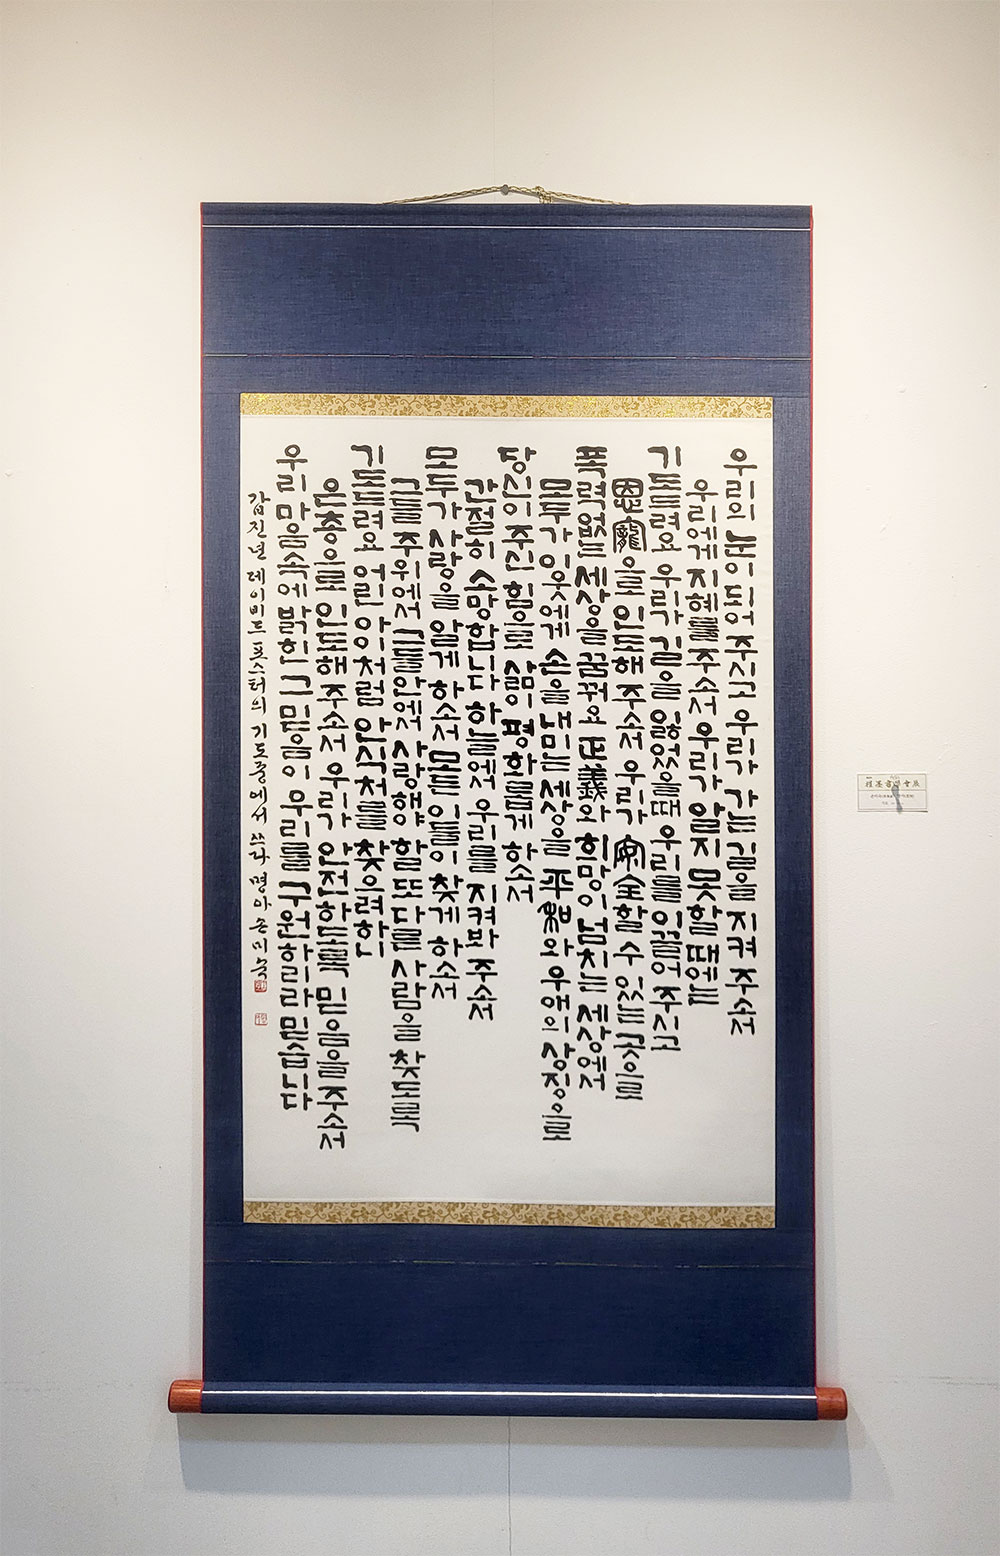 우리의 눈이 되어 주시고 우리가 가는 길을 지켜 주소서
우리에게 지혜를 주소서 우리가 알지 못할 때에는
기도드려요 우리가 길을 잃었을때 우리를 이끌어 주시고
恩寵으로 인도해 주소서 우리가 安全할 수 있는 곳으로
폭력없는 세상을 꿈꿔요 正義와 희망이 넘치는 세상에서
모두가 이웃에게 손을 내미는 세상을 平和와 우애의 상징으로
당신이 주신 힘으로 삶이 평화롭게 하소서
간절히 소망합니다 하늘에서 우리를 지켜봐 주소서
모두가 사랑을 알게 하소서 모든 이들이 찾게 하소서
그들 주위에서 그들 안에서 사랑해야 할 또다른 사람을 찾도록
기도드려요 어린 아이처럼 안식처를 찾으려하니
은총으로 인도해 주소서 우리가 안전하도록 믿음을 주소서
우리 마음속에 밝힌 그 믿음이 우리를 구원하리라 믿습니다
갑진년 데이비드 포스터의 기도중에서 쓰다 명아 손미숙